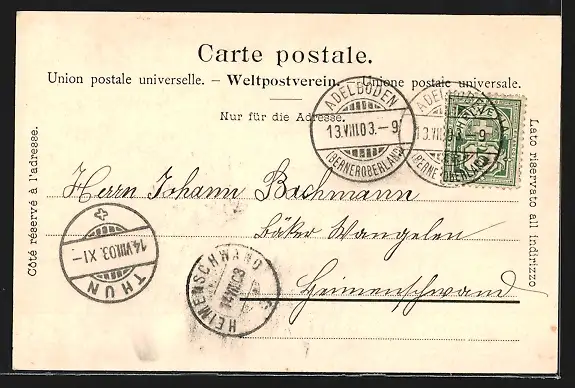 Carte postale.
Union postale universelle. – Weltpostverein. – Unione postale universale.
Nur für die Adresse.
ADELBODEN
13.VIII.03.–9
(BERNEROBERLAND)
ADELBODEN
13.VIII.03.–9
(BERNEROBERLAND)
Côté réservé à l'adresse.
Lato riservato all indirizzo
Herrn Johann Bachmann
bäker Wangelen
Heimenschwand
THUN
14.VIII.03.XI–
HEIMENSCHWAND
14.VIII.03